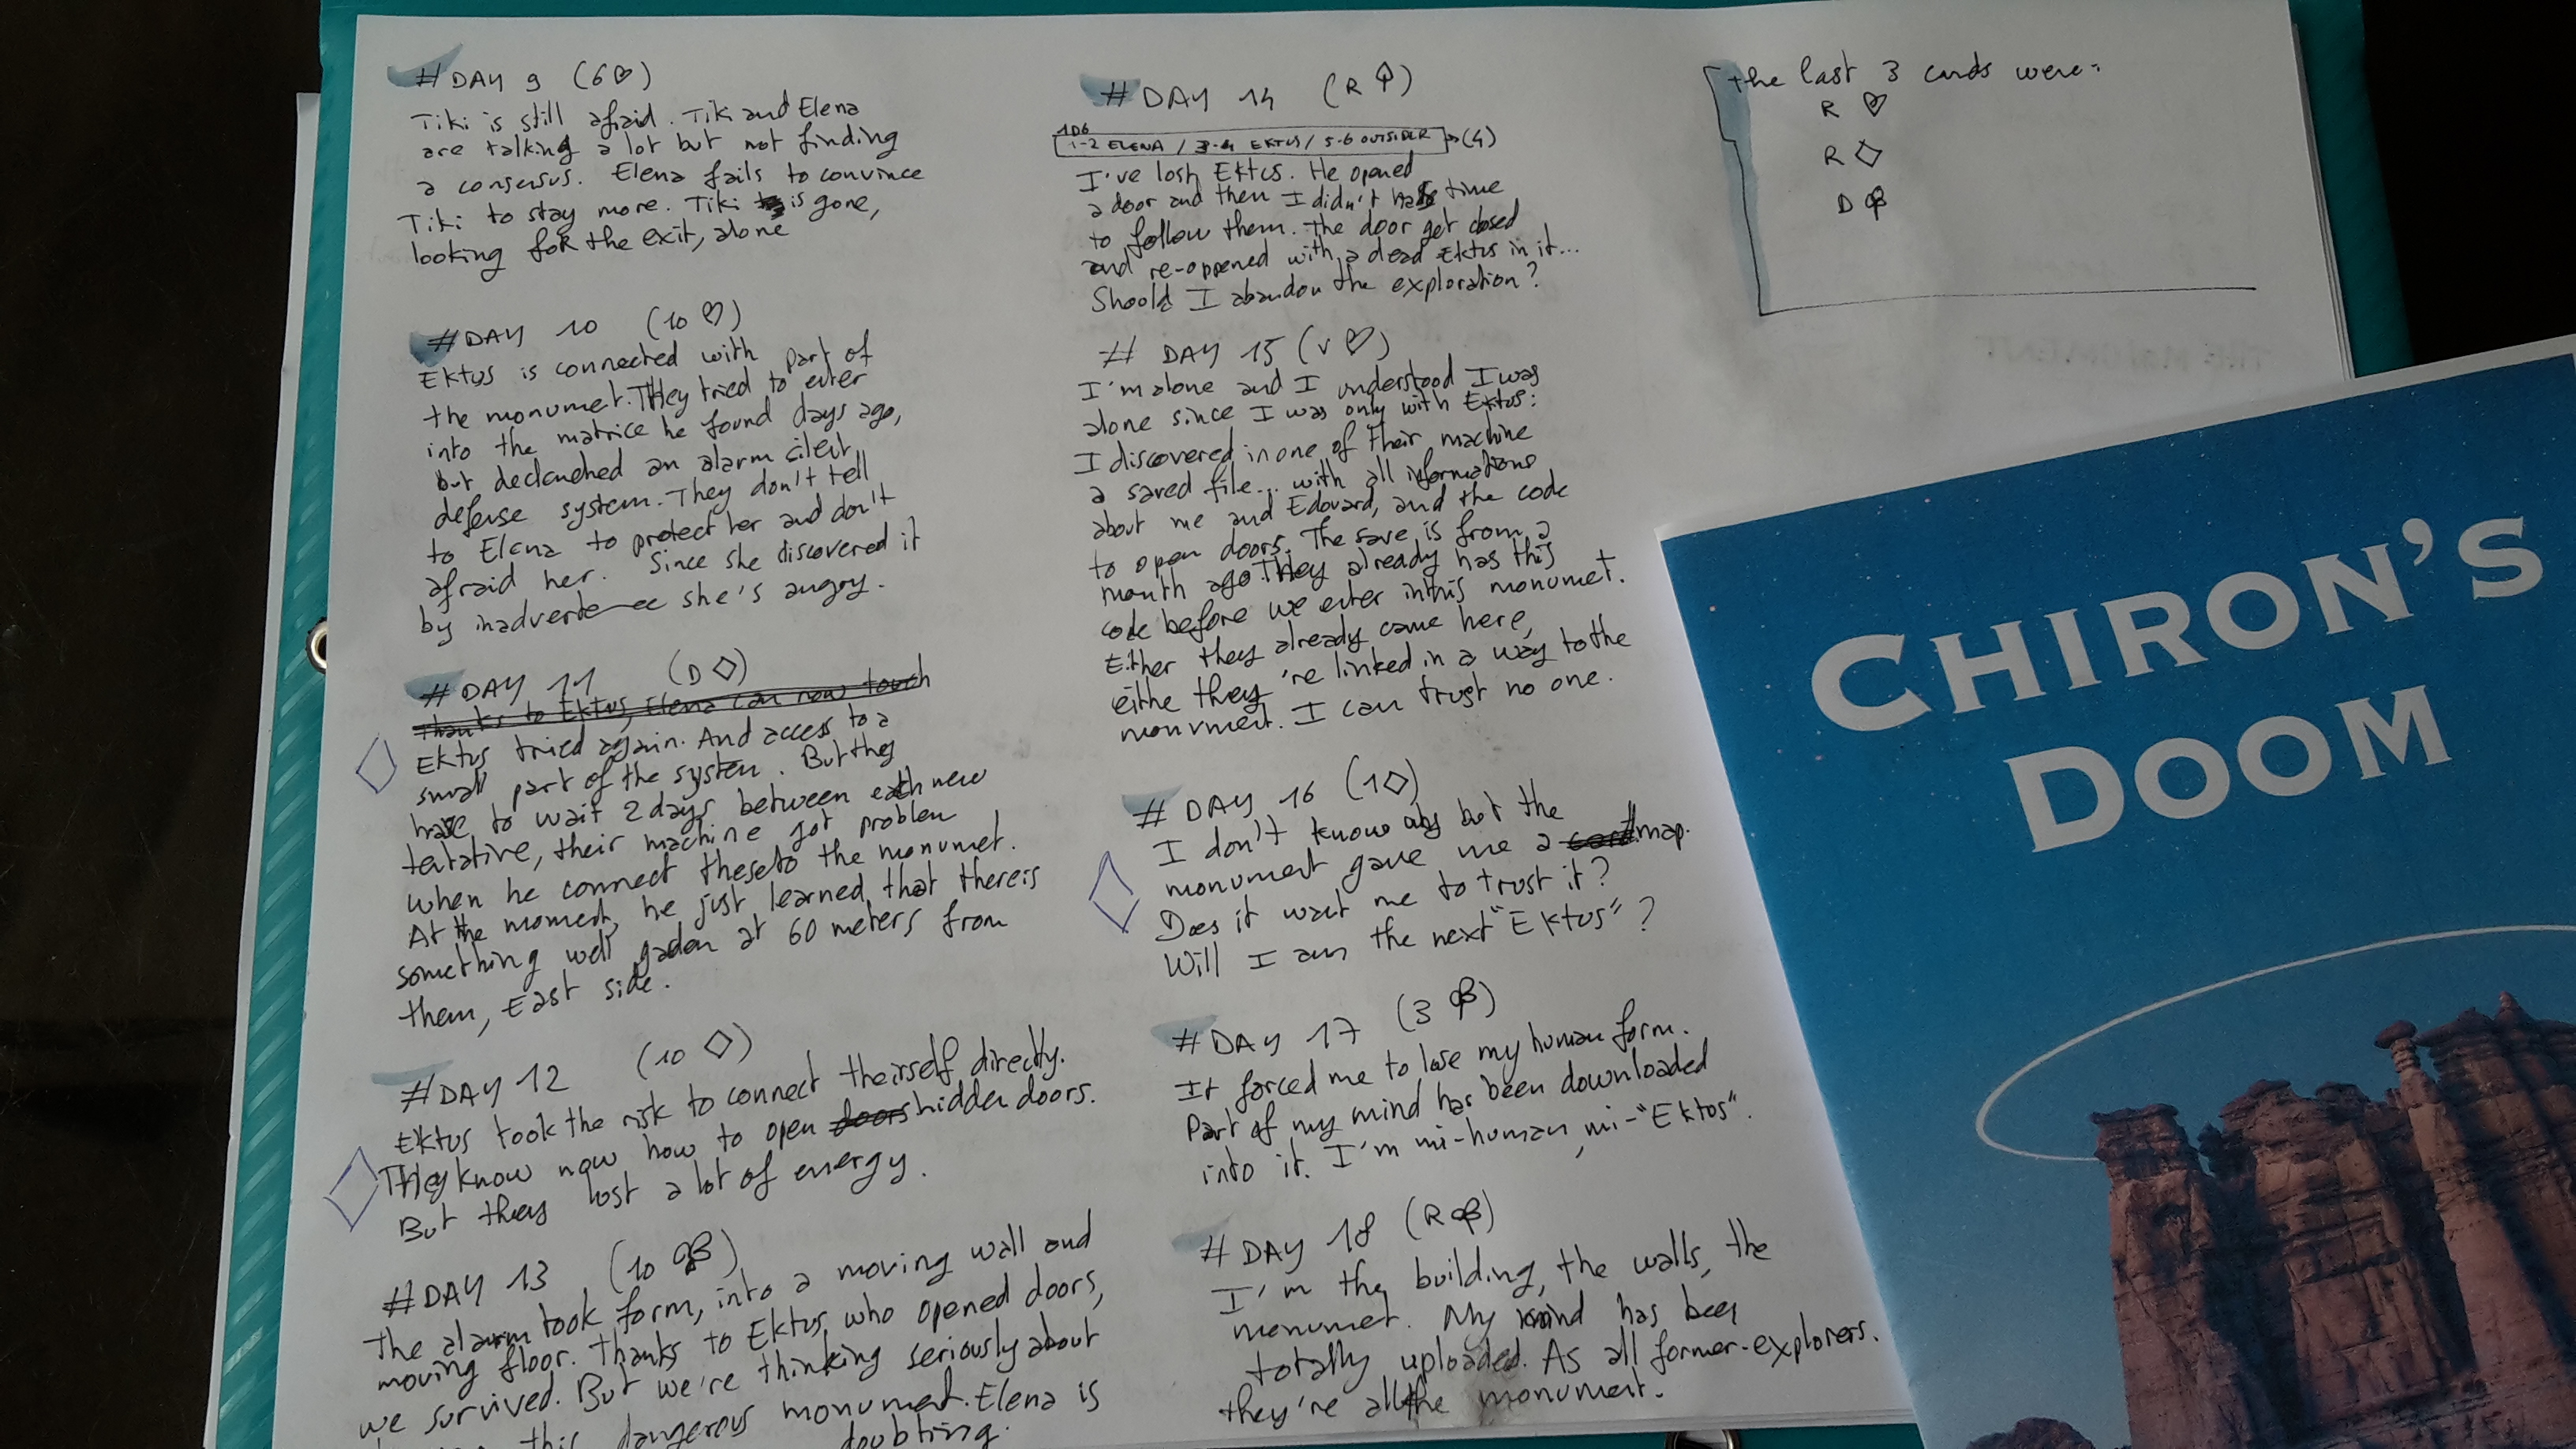 # DAY 9 (6♡)
Tiki is still afraid. Tiki and Elena
are talking a lot but not finding
a consersus. Elena fails to convince
Tiki to stay more. Tiki is gone,
looking for the exit, alone
# DAY 10 (10 ♡)
Ektus is connected with part of
the monumet. They tried to enter
into the matrice he found days ago,
but declenched an alarm cilent
defense system. They don't tell
to Elena to protect her and don't
afraid her. Since she discovered it
by inadvertence she's angry.
# DAY 11 (D ◇)
Thanks to Ektus, Elena can now touch
Ektus tried again. And access to a
small part of the system. But they
have to wait 2 days between each new
tentative, their machine got problem
when he connect these to the monumet.
At the moment, he just learned that there is
something well at 60 meters from
them, East side.
# DAY 12 (10 ◇)
Ektus took the risk to connect theirself directly.
They know now how to open doors hidden doors.
But they lost a lot of energy.
# DAY 13 (10 ♧)
The alarm took form, into a moving wall and
moving floor. Thanks to Ektus who opened doors,
we survived. But we're thinking seriously about
this dangerous monument. Elena is
doubting.
# DAY 14 (R ♤)
1D6
1-2 ELENA / 3-4 EKTUS / 5-6 OUTSIDER → (4)
I've lost Ektus. He opened
a door and then I didn't have time
to follow them. The door get closed
and re-oppened with a dead Ektus in it...
Should I abandon the exploration?
# DAY 15 (V ♡)
I'm alone and I understood I was
alone since I was only with Ektus:
I discovered in one of their machine
a saved file... with all informations
about me and Edouard, and the code
to open doors. The save is from a
month ago. They already has this
code before we enter in this monumet.
Either they already came here,
eithe they're linked in a way to the
monument. I can trust no one.
# DAY 16 (1◇)
I don't know why but the
monument gave me a map.
Does it want me to trust it?
Will I am the next "Ektus"?
# DAY 17 (3 ♧)
It forced me to lose my human form.
Part of my mind has been downloaded
into it. I'm mi-human, mi-"Ektos".
# DAY 18 (R♧)
I'm the building, the walls, the
monumet. My mind has been
totally uploaded. As all former-explorers.
they're all the monument.
the last 3 cards were:
R ♡
R ◇
D ♧
CHIRON'S
DOOM